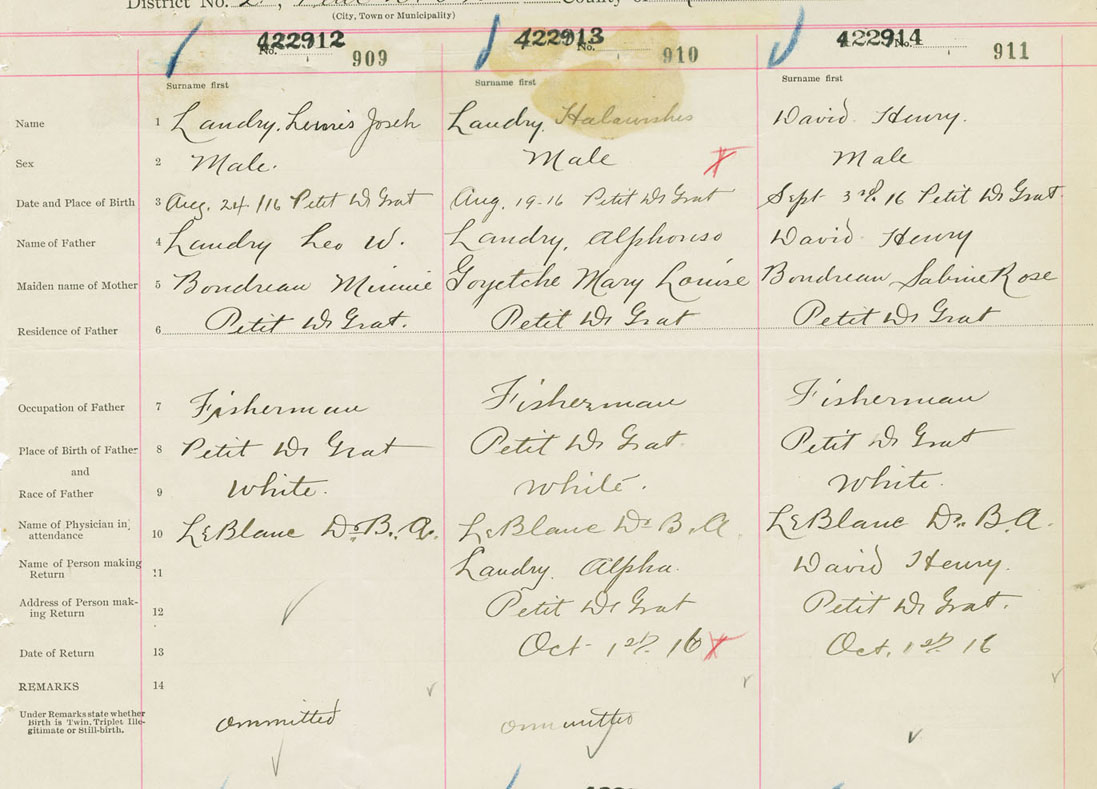 District No. 2,
County of
(City, Town or Municipality)
422912 422913 422914
No. 909 No. 910 No. 911
Surname first Surname first Surname first
Name 1 Landry, Lewis Joseh Landry, David Henry.
Sex 2 Male. Male X Male
Date and Place of Birth 3 Aug. 24/16 Petit De Grat Aug. 19-16 Petit De Grat Sept 3rd. 16 Petit De Grat.
Name of Father 4 Landry Leo W. Landry, Alphonso David Henry
Maiden name of Mother 5 Bondreau Minnie Goyetche Mary Louise Bondreau Sabine Rose
Residence of Father 6 Petit De Grat. Petit De Grat Petit De Grat
Occupation of Father 7 Fisherman Fisherman Fisherman
Place of Birth of Father 8 Petit De Grat Petit De Grat Petit De Grat
and
Race of Father 9 White. White. White.
Name of Physician in attendance 10 LeBlanc Dr. B. A. LeBlanc Dr B. A LeBlanc Dr. B. A.
Name of Person making Return 11 Landry Alpha. David Henry.
Address of Person mak-
ing Return 12 Petit De Grat Petit De Grat.
Date of Return 13 Oct - 1st. 16 X Oct. 1st. 16
REMARKS 14
Under Remarks state whether
Birth is Twin, Triplet Ille-
gitimate or Still-birth.
ommitted ommitted